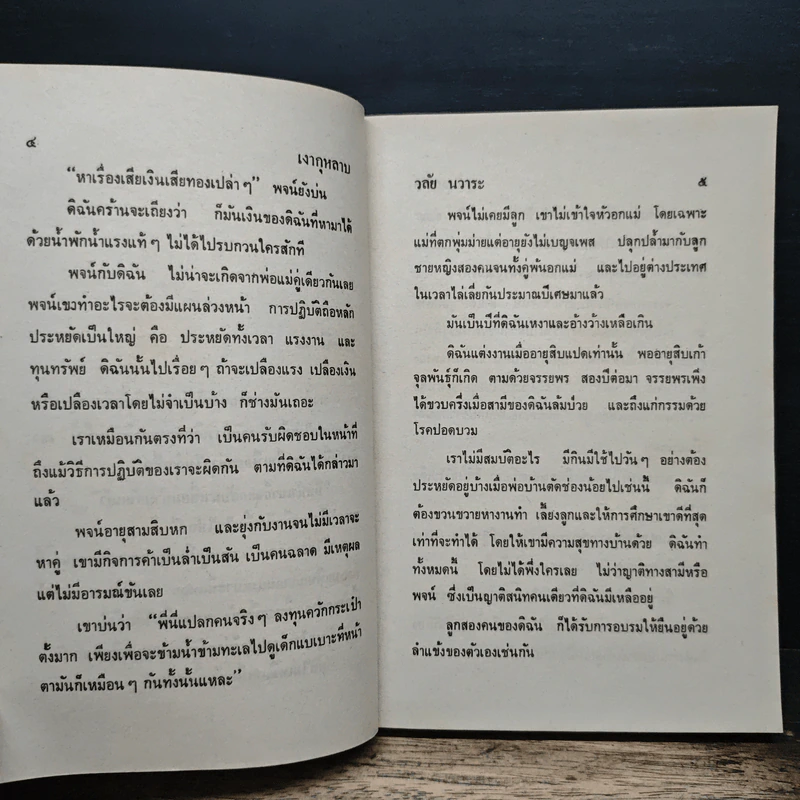 ๔
เงากุหลาบ
“หาเรื่องเสียเงินเสียทองเปล่าๆ” พจน์ยังบ่น
ดิฉันคร้านจะเถียงว่า ก็มันเงินของดิฉันที่หามาได้
ด้วยน้ำพักน้ำแรงแท้ๆ ไม่ได้ไปรบกวนใครสักที
พจน์กับดิฉัน ไม่น่าจะเกิดจากพ่อแม่คู่เดียวกันเลย
พจน์เขาทำอะไรจะต้องมีแผนล่วงหน้า การปฏิบัติถือหลัก
ประหยัดเป็นใหญ่ คือ ประหยัดทั้งเวลา แรงงาน และ
ทุนทรัพย์ ดิฉันนั้นไปเรื่อยๆ ถ้าจะเปลืองแรง เปลืองเงิน
หรือเปลืองเวลาโดยไม่จำเป็นบ้าง ก็ช่างมันเถอะ
เราเหมือนกันตรงที่ว่า เป็นคนรับผิดชอบในหน้าที่
ถึงแม้วิธีการปฏิบัติของเราจะผิดกัน ตามที่ดิฉันได้กล่าวมา
แล้ว
พจน์อายุสามสิบหก และยุ่งกับงานจนไม่มีเวลาจะ
หาคู่ เขามีกิจการค้าเป็นล่ำเป็นสัน เป็นคนฉลาด มีเหตุผล
แต่ไม่มีอารมณ์ขันเลย
เขาบ่นว่า “พี่นี่แปลกคนจริงๆ ลงทุนควักกระเป๋า
ตั้งมาก เพียงเพื่อจะข้ามน้ำข้ามทะเลไปดูเด็กแบเบาะที่หน้า
ตามันก็เหมือนๆ กันทั้งนั้นแหละ”
วลัย นวาระ
๕
พจน์ไม่เคยมีลูก เขาไม่เข้าใจหัวอกแม่ โดยเฉพาะ
แม่ที่ตกพุ่มม่ายแต่อายุยังไม่เบญจเพส ปลุกปล้ำมากับลูก
ชายหญิงสองคนจนทั้งคู่พ้นอกแม่ และไปอยู่ต่างประเทศ
ในเวลาไล่เลี่ยกันประมาณปีเศษมาแล้ว
มันเป็นปีที่ดิฉันเหงาและอ้างว้างเหลือเกิน
ดิฉันแต่งงานเมื่ออายุสิบแปดเท่านั้น พออายุสิบเก้า
จุลพันธุ์ก็เกิด ตามด้วยจรรยพร สองปีต่อมา จรรยพรเพิ่ง
ได้ขวบครึ่งเมื่อสามีของดิฉันล้มป่วย และถึงแก่กรรมด้วย
โรคปอดบวม
เราไม่มีสมบัติอะไร มีกินมีใช้ไปวันๆ อย่างต้อง
ประหยัดอยู่บ้างเมื่อพ่อบ้านตัดช่องน้อยไปเช่นนี้ ดิฉันก็
ต้องขวนขวายหางานทำ เลี้ยงลูกและให้การศึกษาเขาดีที่สุด
เท่าที่จะทำได้ โดยให้เขามีความสุขทางบ้านด้วย ดิฉันทำ
ทั้งหมดนี้ โดยไม่ได้พึ่งใครเลย ไม่ว่าญาติทางสามีหรือ
พจน์ ซึ่งเป็นญาติสนิทคนเดียวที่ดิฉันมีเหลืออยู่
ลูกสองคนของดิฉัน ก็ได้รับการอบรมให้ยืนอยู่ด้วย
ลำแข้งของตัวเองเช่นกัน